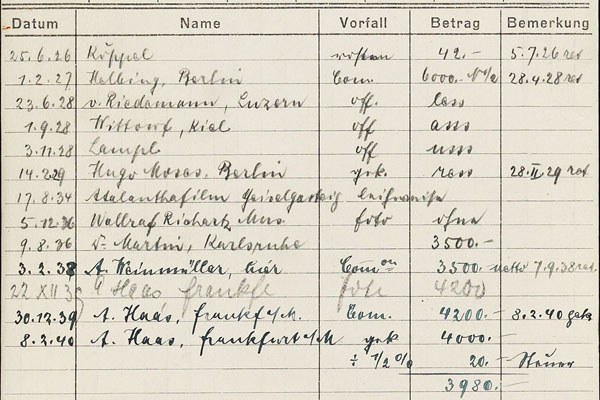 Datum Name Vorfall Betrag Bemerkung
25.6.26 Köppel 42.- 5.7.26 ret
1.2.27 Helbing, Berlin Com. 6000. 28.4.28 ret
23.6.28 v. Riedemann, Luzern off. less
1.9.28 Wittorf, Kiel off ass
3.11.28 Lampl off uss
14.2.29 Hugo Moses, Berlin gek. ress 28.II.29 ret
17.8.34 Atalanthafilm Geiselgasteig leihweise
5.12.36 Wallraf Richartz Mus foto ohne
9.8.36 Dr. Martin, Karlsruhe 3500.-
3.2.38 A. Weinmüller, hier Com 3500.- netto 7.9.38 ret.
22 XII 39 A Haas frankf foto 4200
30.12.39 A. Haas, frankf a/M. Com. 4200.- 8.2.40 gek
8.2.40 A. Haas, frankfurt a/M gek 4000.-
÷ 1/2 % 20.- Steuer
3980.-